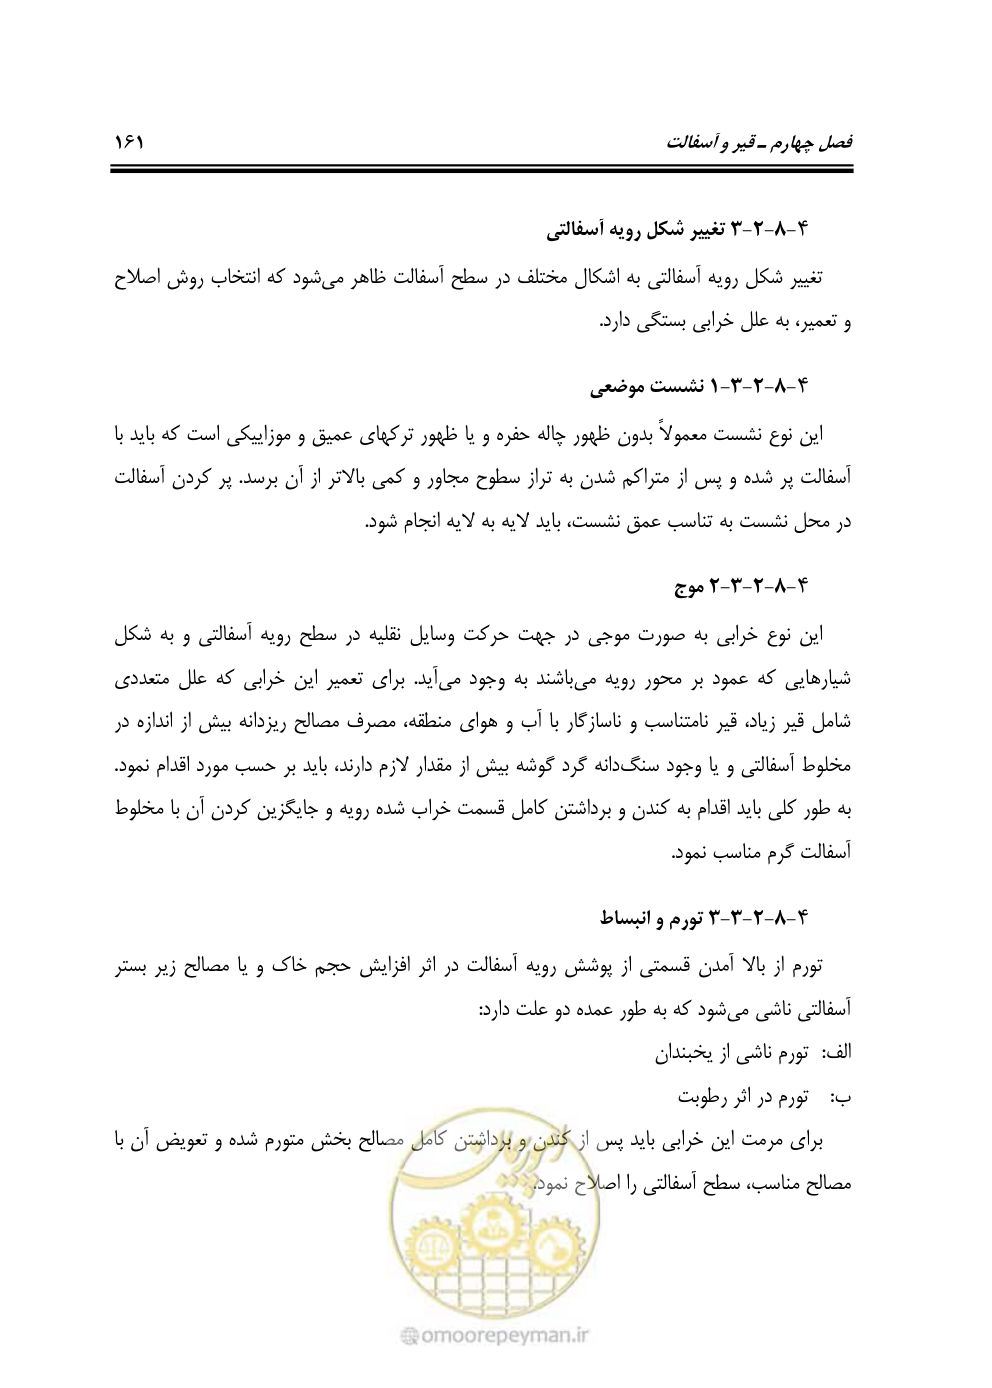 فصل چهارم ـ قیر و آسفالت
۱۶۱
۴-۸-۲-۳ تغییر شکل رویه آسفالتی
تغییر شکل رویه آسفالتی به اشکال مختلف در سطح آسفالت ظاهر می‌شود که انتخاب روش اصلاح
و تعمیر، به علل خرابی بستگی دارد.
۴-۸-۲-۳-۱ نشست موضعی
این نوع نشست معمولاً بدون ظهور چاله حفره و یا ظهور ترکهای عمیق و موزاییکی است که باید با
آسفالت پر شده و پس از متراکم شدن به تراز سطوح مجاور و کمی بالاتر از آن برسد. پر کردن آسفالت
در محل نشست به تناسب عمق نشست، باید لایه به لایه انجام شود.
۴-۸-۲-۳-۲ موج
این نوع خرابی به صورت موجی در جهت حرکت وسایل نقلیه در سطح رویه آسفالتی و به شکل
شیارهایی که عمود بر محور رویه می‌باشند به وجود می‌آید. برای تعمیر این خرابی که علل متعددی
شامل قیر زیاد، قیر نامتناسب و ناسازگار با آب و هوای منطقه، مصرف مصالح ریزدانه بیش از اندازه در
مخلوط آسفالتی و یا وجود سنگ‌دانه گرد گوشه بیش از مقدار لازم دارند، باید بر حسب مورد اقدام نمود.
به طور کلی باید اقدام به کندن و برداشتن کامل قسمت خراب شده رویه و جایگزین کردن آن با مخلوط
آسفالت گرم مناسب نمود.
۴-۸-۲-۳-۳ تورم و انبساط
تورم از بالا آمدن قسمتی از پوشش رویه آسفالت در اثر افزایش حجم خاک و یا مصالح زیر بستر
آسفالتی ناشی می‌شود که به طور عمده دو علت دارد:
الف: تورم ناشی از یخبندان
ب: تورم در اثر رطوبت
برای مرمت این خرابی باید پس از کندن و برداشتن کامل مصالح بخش متورم شده و تعویض آن با
مصالح مناسب، سطح آسفالتی را اصلاح نمود.
امور پیمان
@omoorepeyman.ir